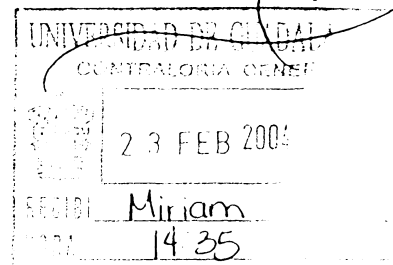 UNIVERSIDAD DE GUADALA
CONTRALORIA GENER
23 FEB 2004
RECIBI Miriam
HORA 14 35